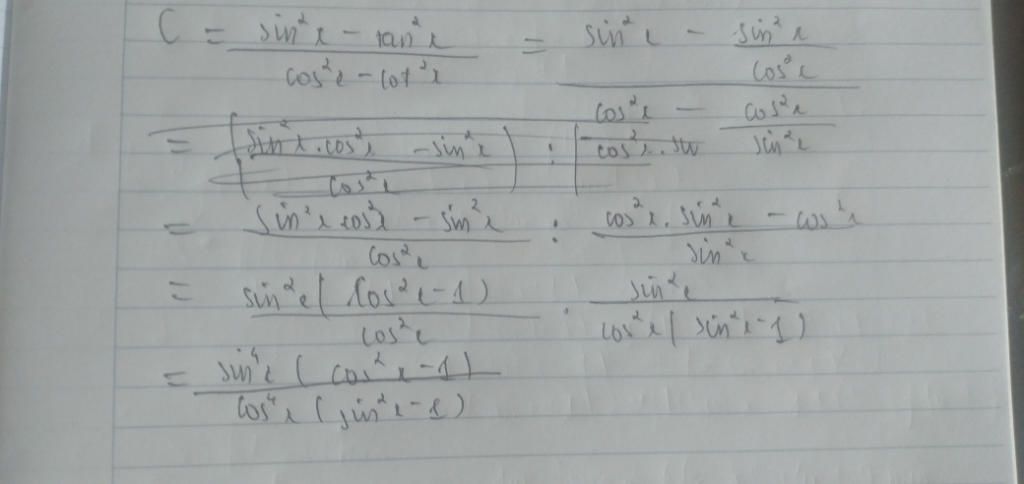 C = (sin²x − tan²x)/(cos²x − cot²x) = (sin²x − sin²x/cos²x)/(cos²x − cos²x/sin²x)
= ((sin²x . cos²x − sin²x)/cos²x) : (cos²x . sin
= (sin²x cos²x − sin²x)/cos²x : (cos²x . sin²x − cos²x)/sin²x
= sin²x(cos²x−1)/cos²x . sin²x/cos²x(sin²x−1)
= sin⁴x(cos²x−1)/cos⁴x(sin²x−1)